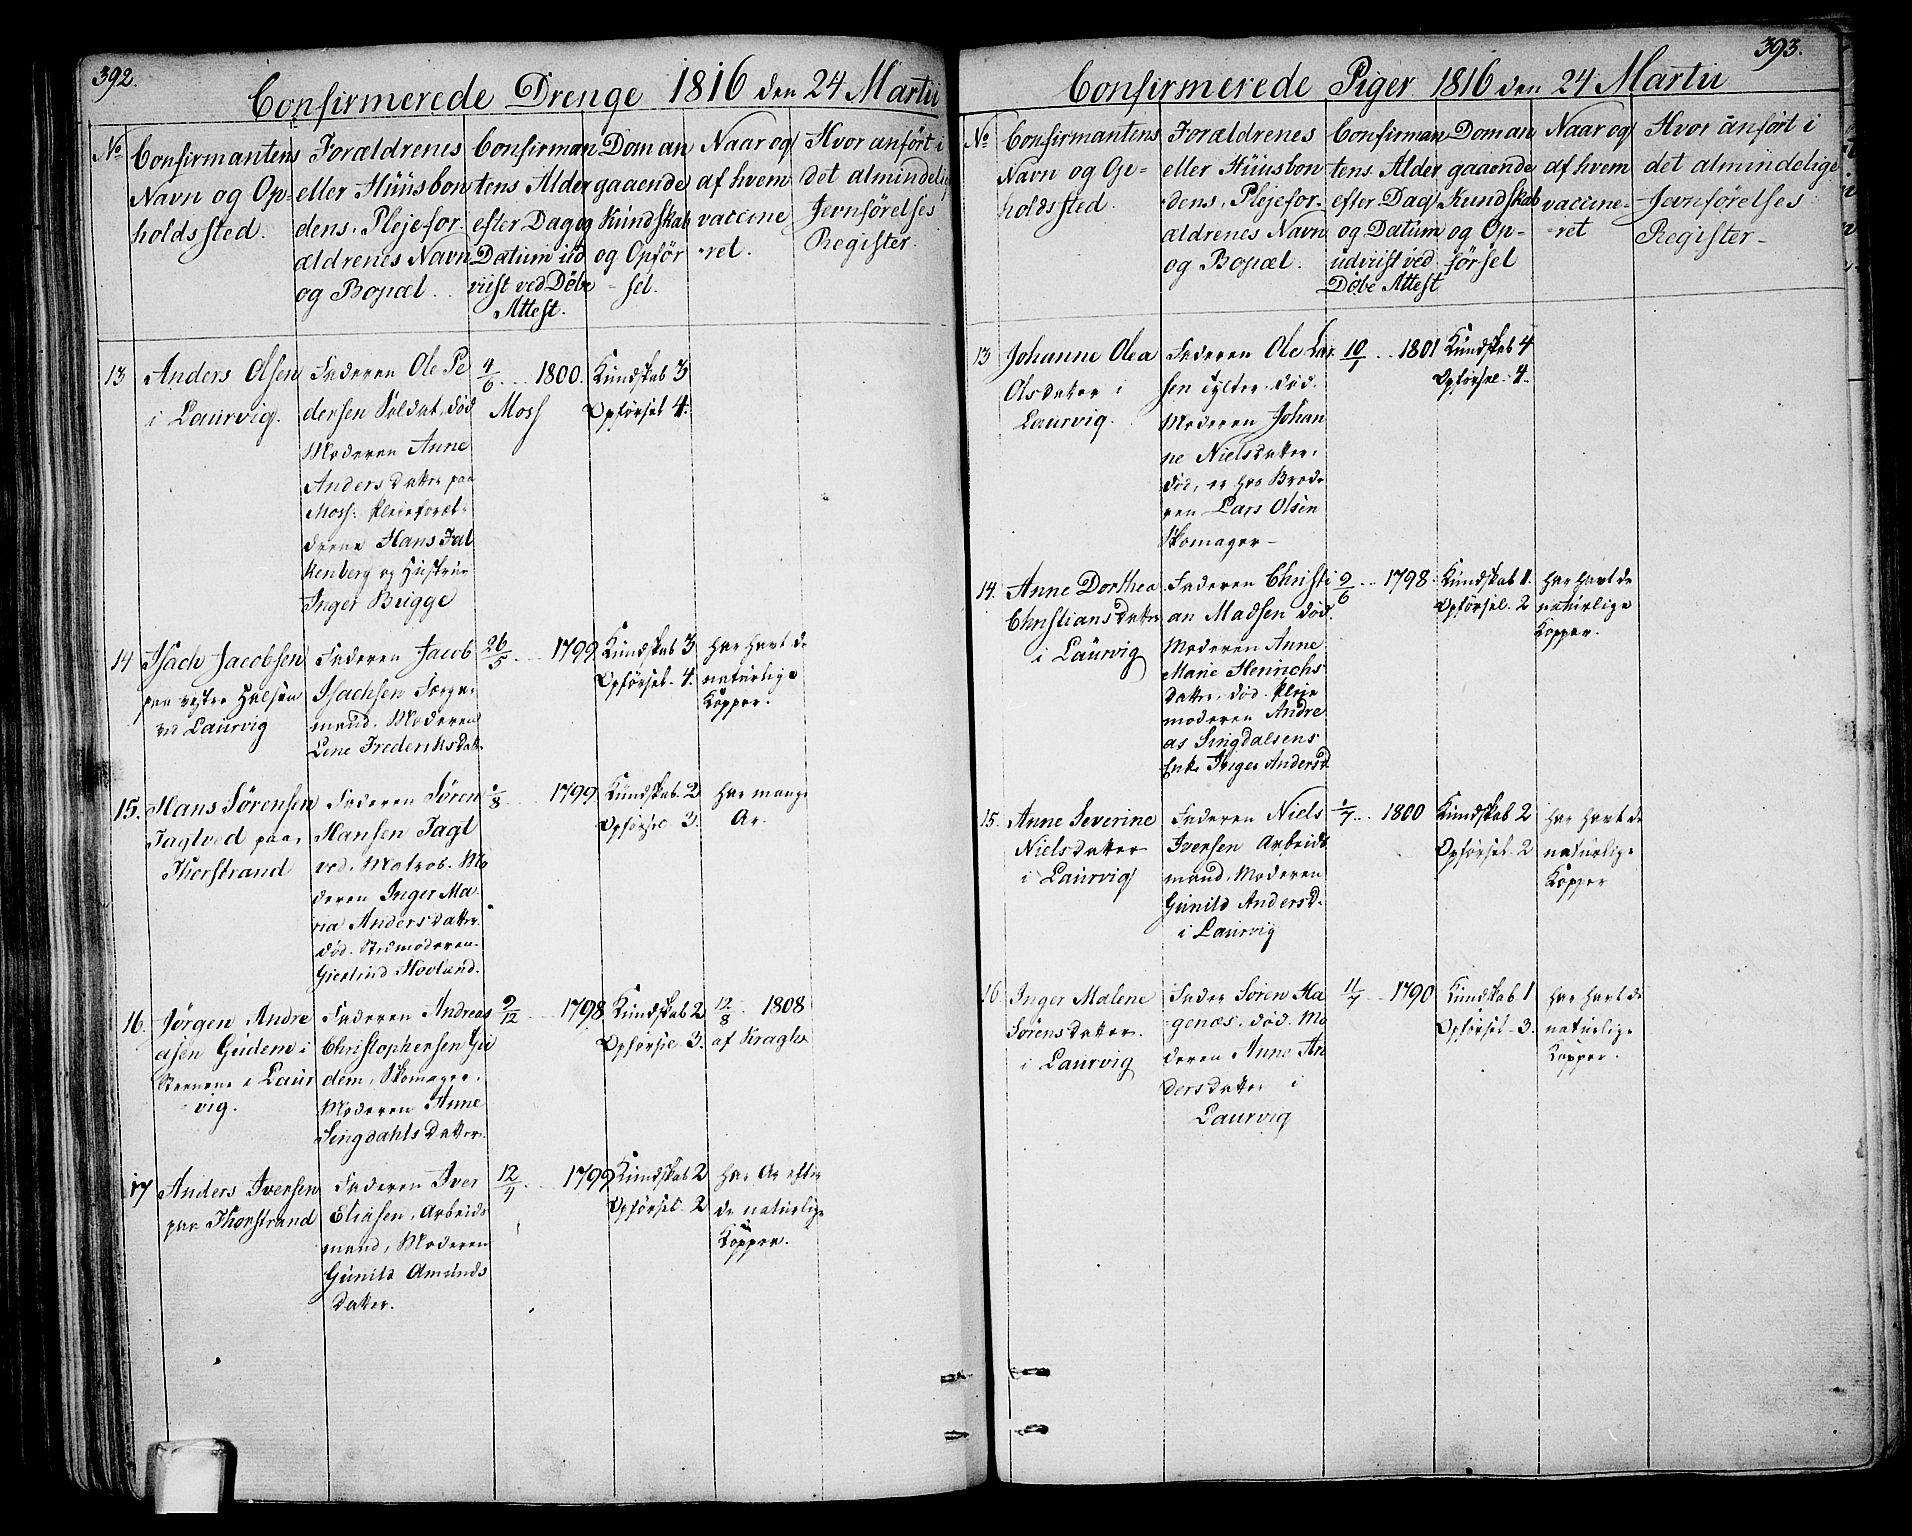 392.
Confirmerede Drenge 1816 den 24 Martii
No
Confirmantens
Navn og Op-
holdssted.
Forældrenes
eller Huusbon
dens, Plejefor-
ældrenes Navn
og Bopæl.
Confirman
tens Alder
efter Dag og
Datum ud
viist ved Døbe
Attest.
Dom an
gaaende
Kundskab
og Opför
-sel.
Naar og
af hvem
vaccine
-ret.
Hvor anfört i
det almindelig
Jevnförelses
Register.
13
Anders Olsen
i Laurvig.
Faderen Ole Pe
dersen Soldat, död
Moderen Anne
Anders datter paa
Moss. Pleieforæl-
drene Hans Fal
kenberg og Hustrue
Inger Brigge
4/6 1800.
Moss
Kundskab 3
Opförsel 4.
14
Isach Jacobsen
paa vestre Halsen
ved Laurvig
Faderen Jacob
Isachsen Færge-
mand. Moderen
Lene Frederiksdatt
26/5 1799
Kundskab 3
Opförsel 4.
har havt de
naturlige
Kopper.
15.
Hans Sörensen
Jagtved paa
Thorstrand
Faderen Sören
Hansen Jagt
ved. Matros. Mo
deren Inger Ma-
ria Andersdatter
död. Stedmoderen
Gierlind Hovland.
/8 1799
Kundskab. 2
Opförse 3.
har mange
Ar.
16.
Jörgen Andre
asen Gudem i
i Laur
vig.
Faderen Andreas
Christophersen Gu
dem, Skomager.
Moderen Anne
Singdahls datter.
9/12 1798
Kundskab 2
Opförse 3.
12/8 1808
af Kragh
17
Anders Iversen
paa Thorstrand
Faderen Iver
Eliasen, Arbeids
mand, Moderen
Gunild Amunds
datter.
12/4 1799
Kundskab 2
Opförsel 2
har Ar efter
de naturlige
Kopper.
393.
Confirmerede Piger 1816 den 24 Martii
No
Confirmantens
Navn og Op-
holdssted.
Forældrenes
eller Huusbon
dens, Plejefor-
ældrenes Navn
og Bopæl.
Confirman
tens Alder
efter Dag
og Datum
udviist ved
Døbe Attest
Dom an
gaaende
Kundskab
og Op-
försel
Naar og
af hvem
vaccine-
-ret
Hvor anfört i
det almindelige
Jevnförelses
Register-
13
Johanne Olea
Olsdatter i
Laurvig.
Faderen Ole Lar
sen död.
Moderen Johan
ne Nielsdatter,
död, er hos Brode
ren Lars Olsen
Skomager-
10/1 1801
Kundskab 4
Opförsel 4.
14.
Anne Dorthea
Christiansdatter
i Laurvig
Faderen Christi
an Madsen död.
Moderen Anne
Marie Henrichs
datter, död. Pleie
moderen Andre
as Singdalsens
Enke Inger Andersd
9/6 1798.
Kundskab 1.
Opförsel. 2
har havt de
naturlige
Kopper.
15.
Anne Severine
Nielsdatter
i Laurvig
Faderen Niels
Iversen Arbeids
mand, Moderen
Gunild Andersd.
i Laurvig
/7 1800
Kundskab 2
Opförsel 2
har havt de
naturlige
Kopper
16
Inger Malene
Sörensdatter.
i Laurvig
Fader Sören Ha
genæs. död. Mo
deren Anne An
dersdatter i
Laurvig
11/7 1790
Kundskab 1
Opförsel 3.
har havt de
naturlige
Kopper.